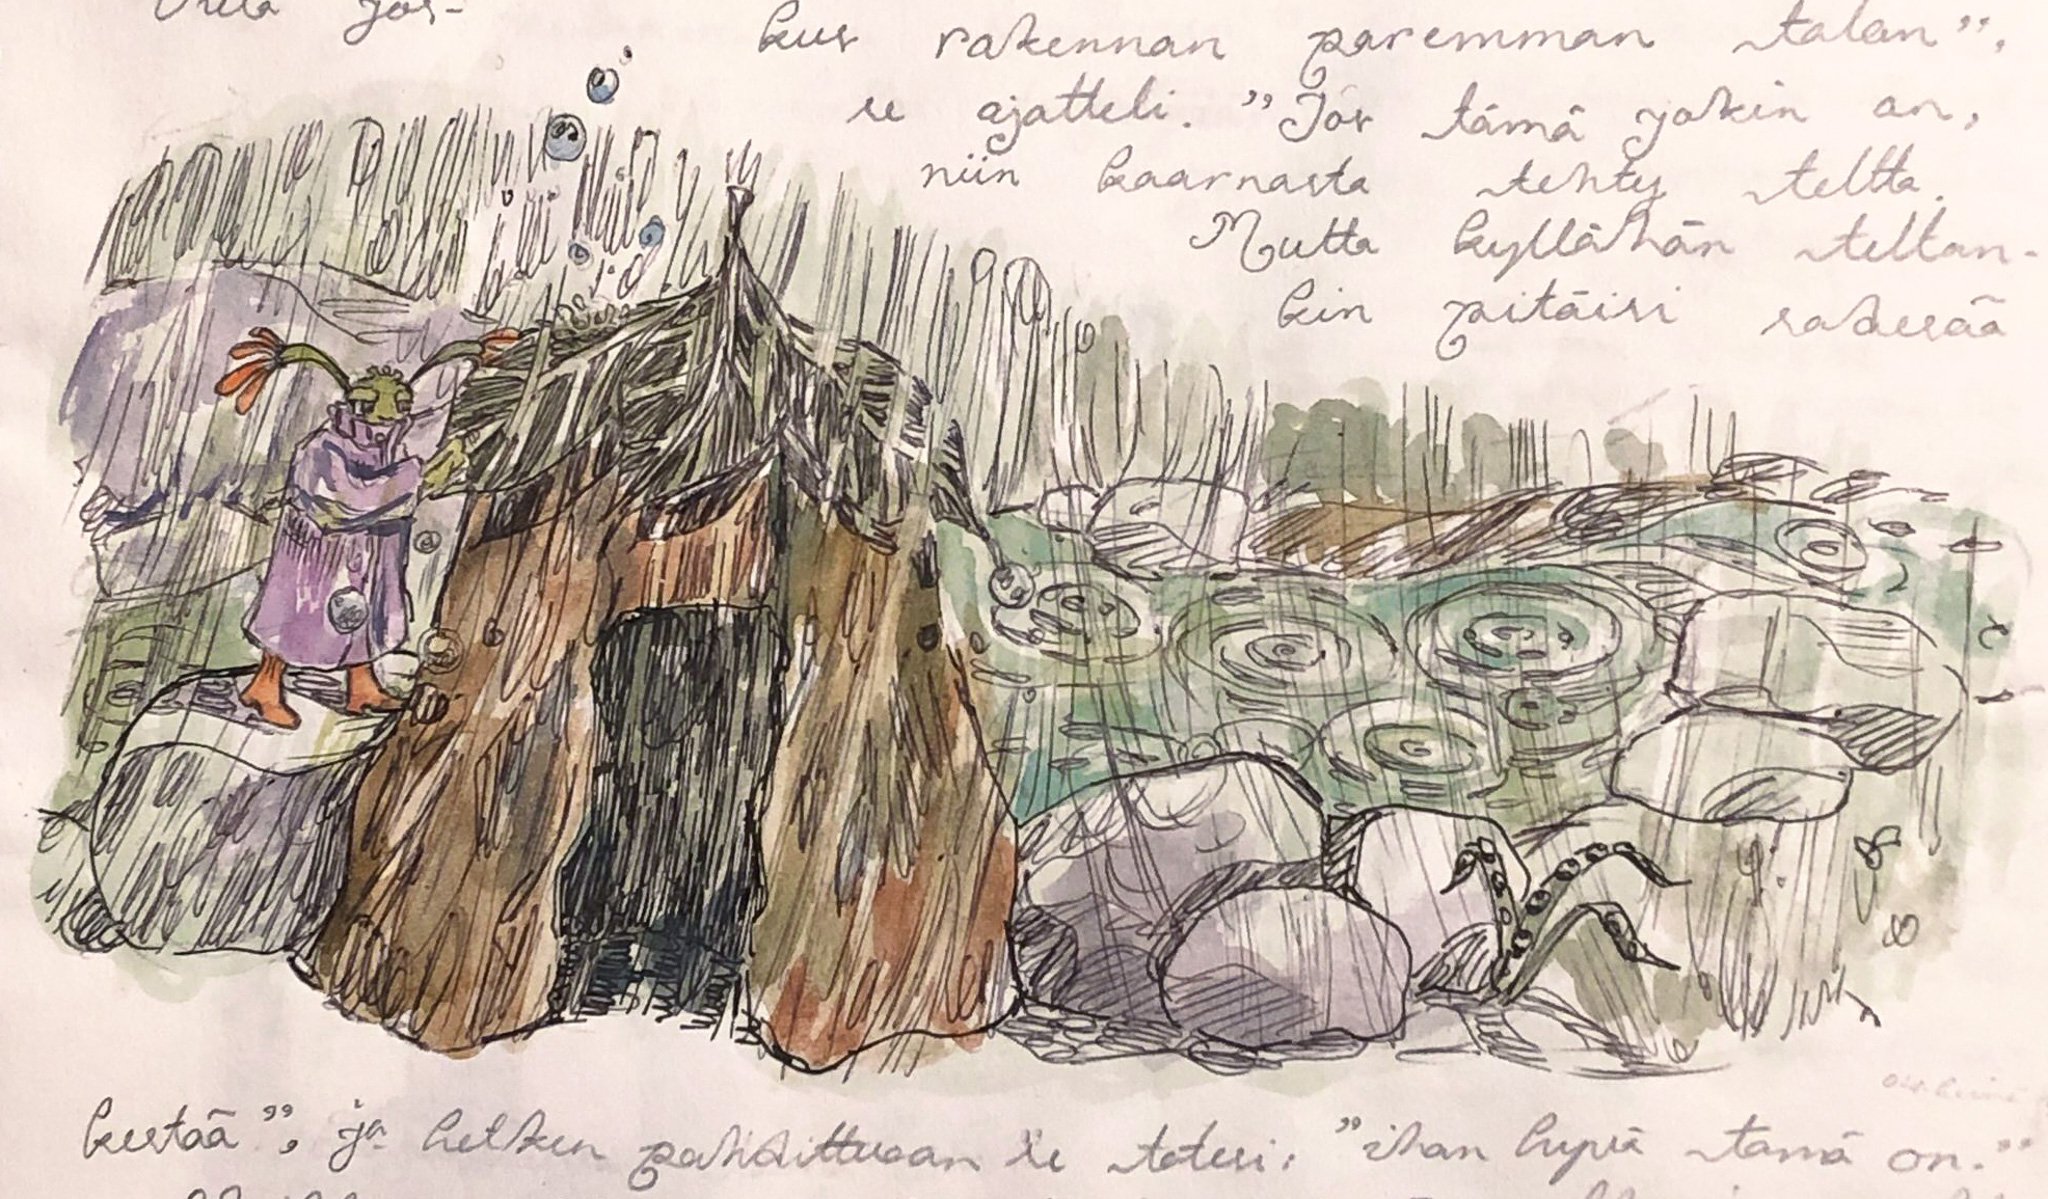 jos-
kus rakennan paremman talon",
se ajatteli. "Jos tämä jokin on,
niin kaarnasta tehty teltta.
Mutta kyllähän teltan-
kin pitäisi sadesää
kestää", ja hetken pohdittuaan se totesi: "ihan hyvä tämä on."